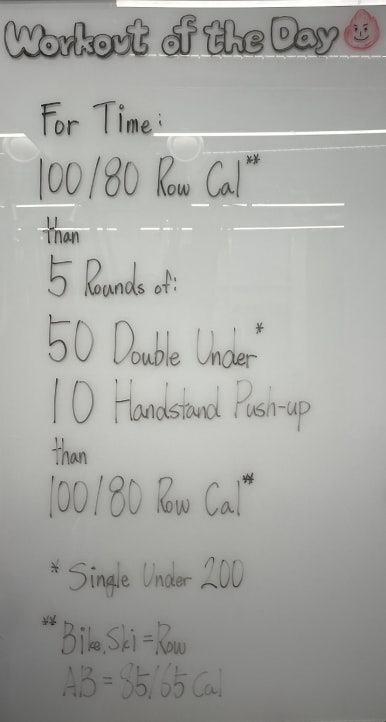 Workout of the Day
For Time:
100/80 Row Cal**
than
5 Rounds of:
50 Double Under*
10 Handstand Push-up
than
100/80 Row Cal**
* Single Under 200
** Bike, Ski = Row
AB = 85/65 Cal